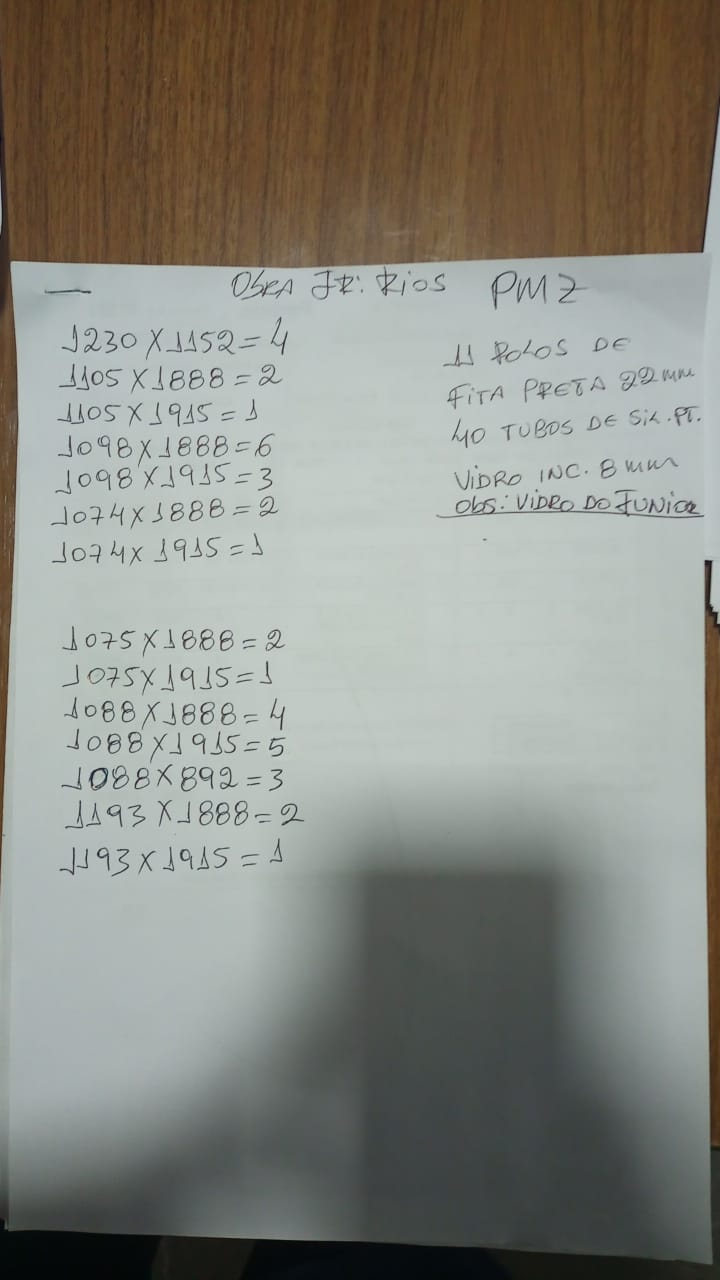 OBRA JR: RIOS PMZ
1230 X 1152 = 4
1105 X 1888 = 2
1105 X 1915 = 1
1098 X 1888 = 6
1098 X 1915 = 3
1074 X 1888 = 2
1074 X 1915 = 1
1075 X 1888 = 2
1075 X 1915 = 1
1088 X 1888 = 4
1088 X 1915 = 5
1088 X 892 = 3
1193 X 1888 = 2
1193 X 1915 = 1
11 ROLOS DE
FITA PRETA 22mm
40 TUBOS DE SIL. PT.
VIDRO INC. 8 mm
Obs: VIDRO DO JUNIOR